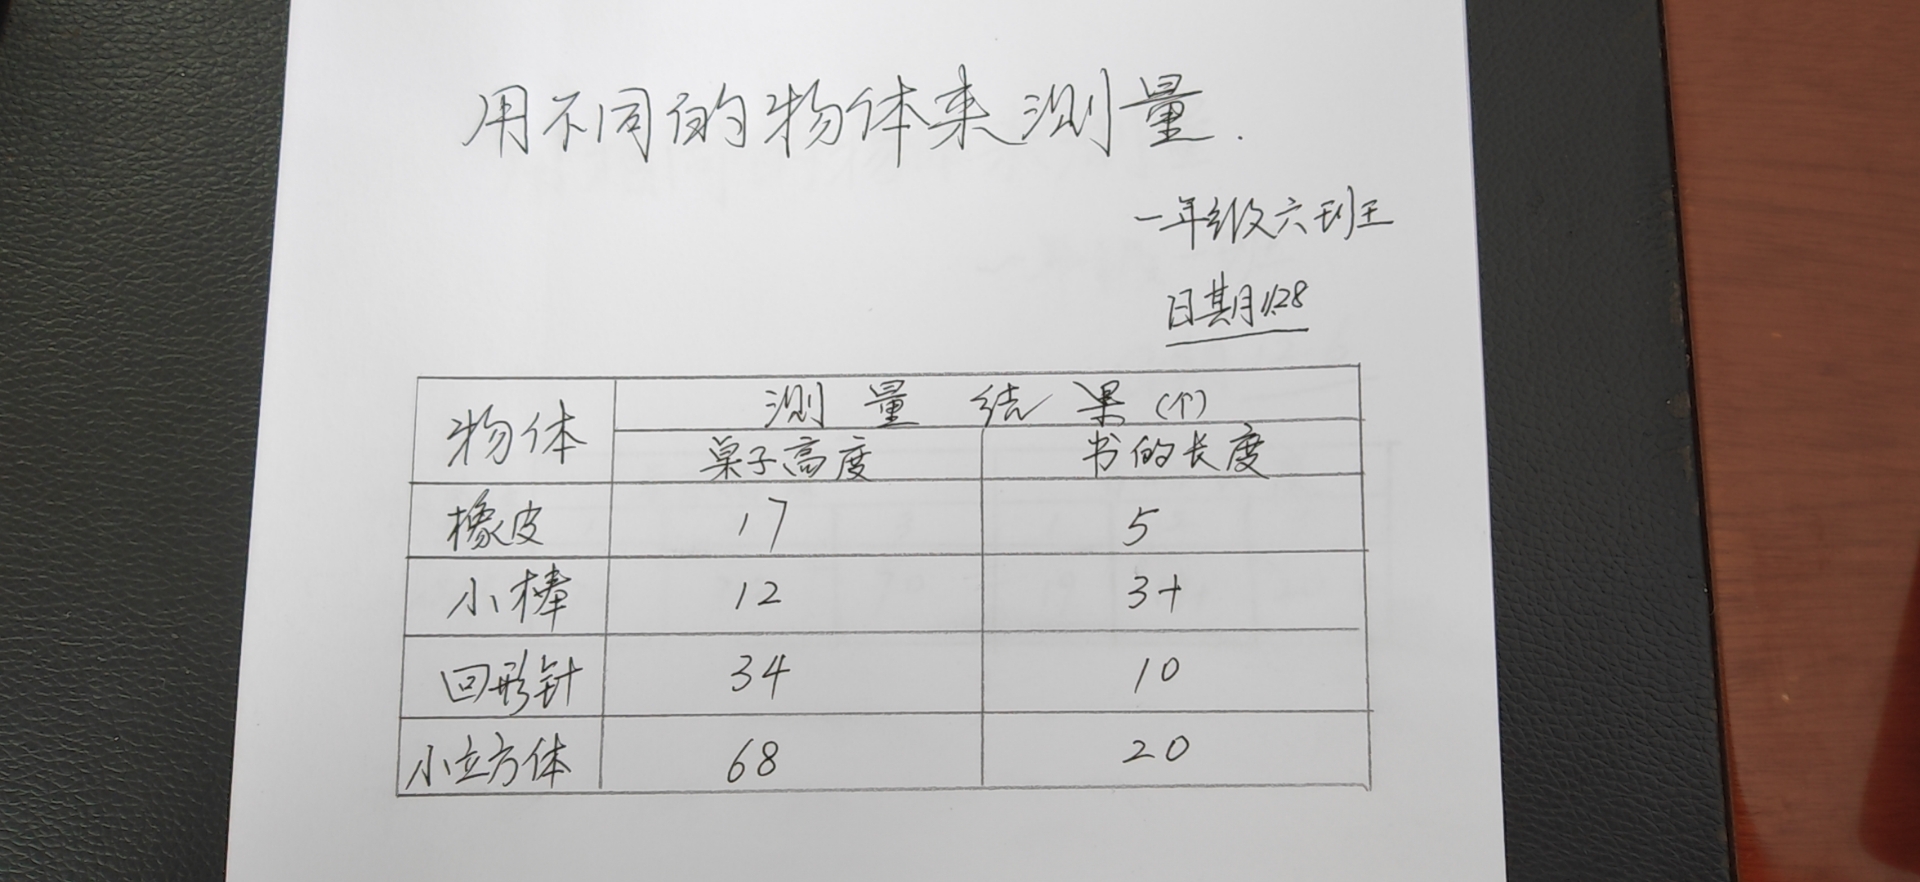 用不同的物体来测量.
一年级六班王
日期1.28
物体 测量结果(个)
桌子高度 书的长度
橡皮 17 5
小棒 12 3+
回形针 34 10
小立方体 68 20